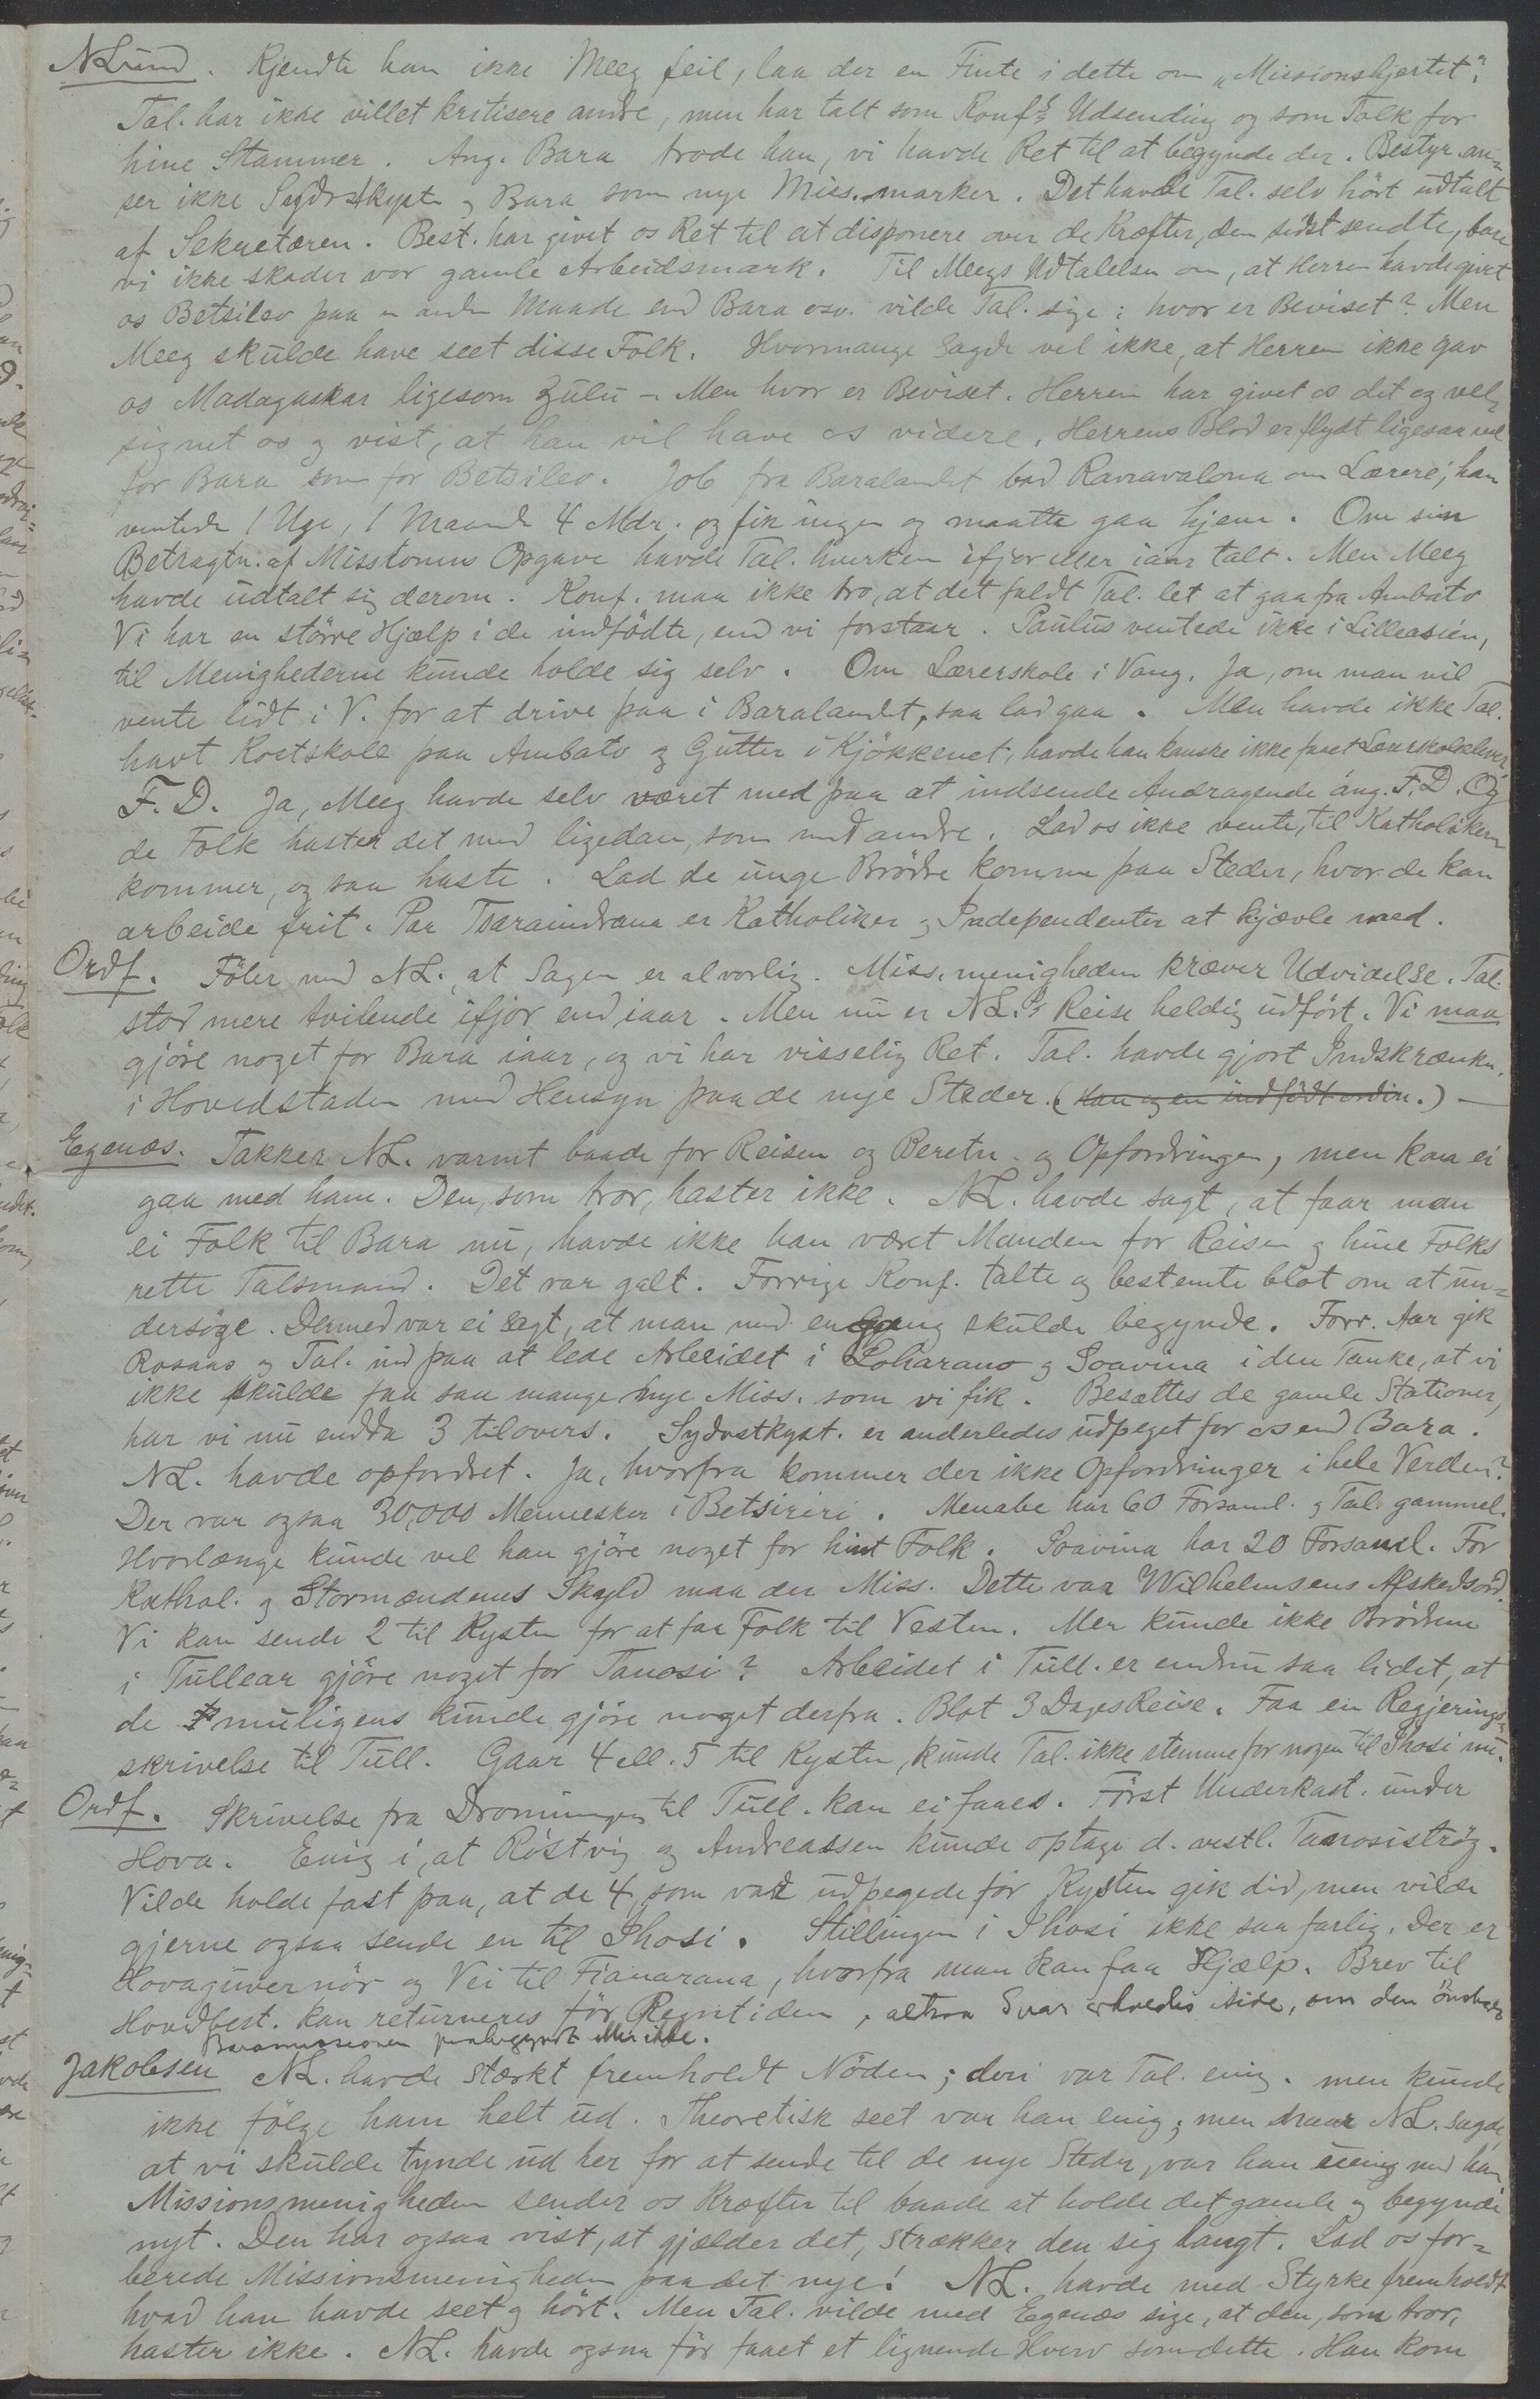 NLund. Kjendte han ikke Meeg feil, laa der en Finte i dette om „Missionshjertet“.
Tal. har ikke villet kritisere andre, men har talt som Konf.s Udsending og som Tolk for
hine Stammer. Ang. Bara trode han, vi havde Ret til at begynde der. Bestyr. an-
ser ikke Sydostkysten og Bara som nye Miss.marker. Det havde Tal. selv hört udtalt
af Sekretæren. Best. har givet os Ret til at disponere over de Kræfter, den sidst sendte, bare
vi ikke skader vor gamle Arbeidsmark. Til Meegs Udtalelse om, at Herren havde givet
os Betsileo paa en anden Maade end Bara osv. vilde Tal. sige: hvor er Beviset? Men
Meeg skulde have seet disse Folk. Hvormange sagde vel ikke, at Herren ikke gav
os Madagaskar ligesom Zulu – Men hvor er Beviset. Herren har givet os det og vel-
signet os og vist, at han vil have os videre. Herrens Blod er flydt ligesaa vel
for Bara som for Betsileo. Job fra Baralandet bad Ranavalona om Lærere; han
ventede 1 Uge, 1 Maaned 4 Mdr. og fik ingen og maatte gaa hjem. Om sin
Betragtn. af Missionens Opgave havde Tal. hverken ifjor eller iaar talt. Men Meeg
havde udtalt sig derom. Konf. maa ikke tro, at det faldt Tal. let at gaa fra Ambato
Vi har en större Hjælp i de indfödte, end vi forstaar. Paulus ventede ikke i Lilleasien,
til Menighederne kunde holde sig selv. Om Lærerskole i Vang. Ja, om man vil
vente lidt i V. for at drive paa i Baralandet, saa lad gaa. Men havde ikke Tal.
havt Kostskole paa Ambato og Gutter i Kjökkenet, havde han kanske ikke faaet Lærerskolelever
F. D. Ja, Meeg havde selv været med paa at indsende Andragende ang. F. D. Og
de Folk haster det med ligedan, som med andre. Lad os ikke vente, til Katholiken
kommer, og saa haste. Lad de unge Brödre komme paa Steder, hvor de kan
arbeide frit. Paa Tsaraindrana er Katholiker og Independenter at kjævle med.
Ordf. Föler med NL., at Sagen er alvorlig. Miss.menigheden kræver Udvidelse. Tal.
stod mere tvilende ifjor end iaar. Men nu er NL.s Reise heldig udfört. Vi maa
gjöre noget for Bara iaar, og vi har visselig Ret. Tal. havde gjort Indskrænkn.
i Hovedstaden med Hensyn paa de nye Steder. (Han og en indfödt ordin.) —
Egenæs. Takker NL. varmt baade for Reisen og Beretn. og Opfordringen, men kan ei
gaa med ham. Den, som tror, haster ikke. NL. havde sagt, at faar man
ei Folk til Bara nu, havde ikke han været Manden for Reisen og hine Folks
rette Talsmand. Det var galt. Forrige Konf. talte og bestemte blot om at un-
dersöge. Dermed var ei sagt, at man med engang skulde begynde. Forr. Aar gik
Rosaas og Tal. ind paa at lede Arbeidet i Loharano og Soavina i den Tanke, at vi
ikke skulde faa saa mange nye Miss. som vi fik. Besættes de gamle Stationer,
har vi nu endda 3 tilovers. Sydostkyst. er anderledes udpeget for os end Bara.
NL. havde opfordret. Ja, hvorfra kommer der ikke Opfordringer i hele Verden?
Der var ogsaa 30,000 Mennesker i Betsiriri. Menabe har 60 Forsaml. og Tal. gammel.
Hvorlænge kunde vel han gjöre noget for hint Folk. Soavina har 20 Forsaml. For
Kathol. og Stormændenes Skyld maa der Miss. Dette var Wilhelmsens Afskedsord.
Vi kan sende 2 til Kysten for at faa Folk til Vesten. Men kunde ikke Brödrene
i Tullear gjöre noget for Tanosi? Arbeidet i Tull. er endnu saa lidet, at
de muligens kunde gjöre noget derfra. Blot 3 Dages Reise. Faa en Regjerings-
skrivelse til Tull. Gaar 4 ell. 5 til Kysten, kunde Tal. ikke stemme for nogen til Ihosi nu.
Ordf. Skrivelse fra Dronningen til Tull. kan ei faaes. Först Underkast. under
Hova. Enig i, at Röstvig og Andreassen kunde optage d. vestl. Tanosiströg.
Vilde holde fast paa, at de 4, som var udpegede for Kysten gik did, men vilde
gjerne ogsaa sende en til Ihosi. Stillingen i Ihosi ikke saa farlig. Der er
Hovaguvernör og Vei til Fianarana, hvorfra man kan faa Hjælp. Brev til
Hovedbest. kan returneres för Regntiden, altsaa Svar isde, om den önskes
Baramissionen paabegyndt eller ikke.
Jakobsen NL. havde stærkt fremholdt Nöden; deri var Tal. enig. men kunde
ikke fölge ham helt ud. Theoretisk seet var han enig; men naar NL. sagde,
at vi skulde tynde ud her for at sende til de nye Steder, var han uenig med ham
Missionsmenigheden sender os Kræfter til baade at holde det gamle og begynde
nyt. Den har ogsaa vist, at gjælder det, strækker den sig langt. Lad os for-
berede Missionsmenigheden paa det nye! NL. havde med Styrke fremholdt
hvad han havde seet og hört. Men Tal. vilde med Egenæs sige, at den, som tror,
haster ikke. NL. havde ogsaa för faaet et lignende Hverv som dette. Han kom